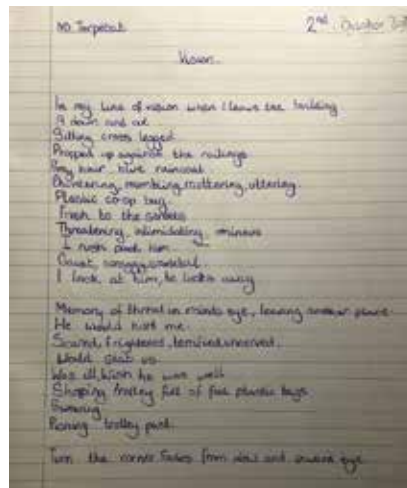 2nd October
Vision.
In my line of vision when I leave the building
A down and out
Sitting cross legged
Propped up against the railings
Grey hair blue raincoat
mumbling, muttering, uttering
Plastic co-op bag
Fresh to the streets
Threatening, intimidating, ominous
I rush past him
Gaunt, scraggy, skeletal
I look at him, he looks away
Memory of threat in minds eye, leaving another place
He would hurt me
Scared, frightened, terrified, unnerved
Would stab us
Was ill, wish he was well
Shopping trolley full of full plastic bags
Swearing
trolley past
Turn the corner fades from view and inward eye